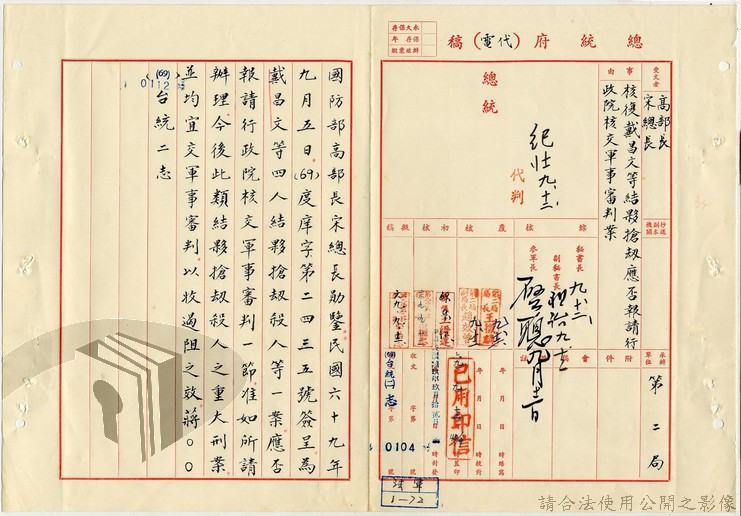 總統府（代電）稿
永久保存
保存年
辦結案銷
受文者
高部長
宋總長
事由
核復戴昌文等結夥搶刼應否報請行
政院核交軍事審判案
抄送
副本
機關
承辦
單位
第二局
附件
會
總統
紀壯九.十二
代判
綜核
覆核
初核
擬稿
秘書長
副秘書長
參軍長
九.十二
九月十二日
已用印信
年月日時繕寫
年月日時校對
時蓋印
時封發
收文
字第
號
(69)台統(二)志
0104
1-72
國防部高部長宋總長勛鑒民國六十九年
九月五日(69)度庠字第二四三五號簽呈為
戴昌文等四人結夥搶刼殺人等一案應否
報請行政院核交軍事審判一節准如所請
辦理今後此類結夥搶刼殺人之重大刑案
並均宜交軍事審判以收遏阻之效蔣○○
(69)台統二志
0112
請合法使用公開之影像